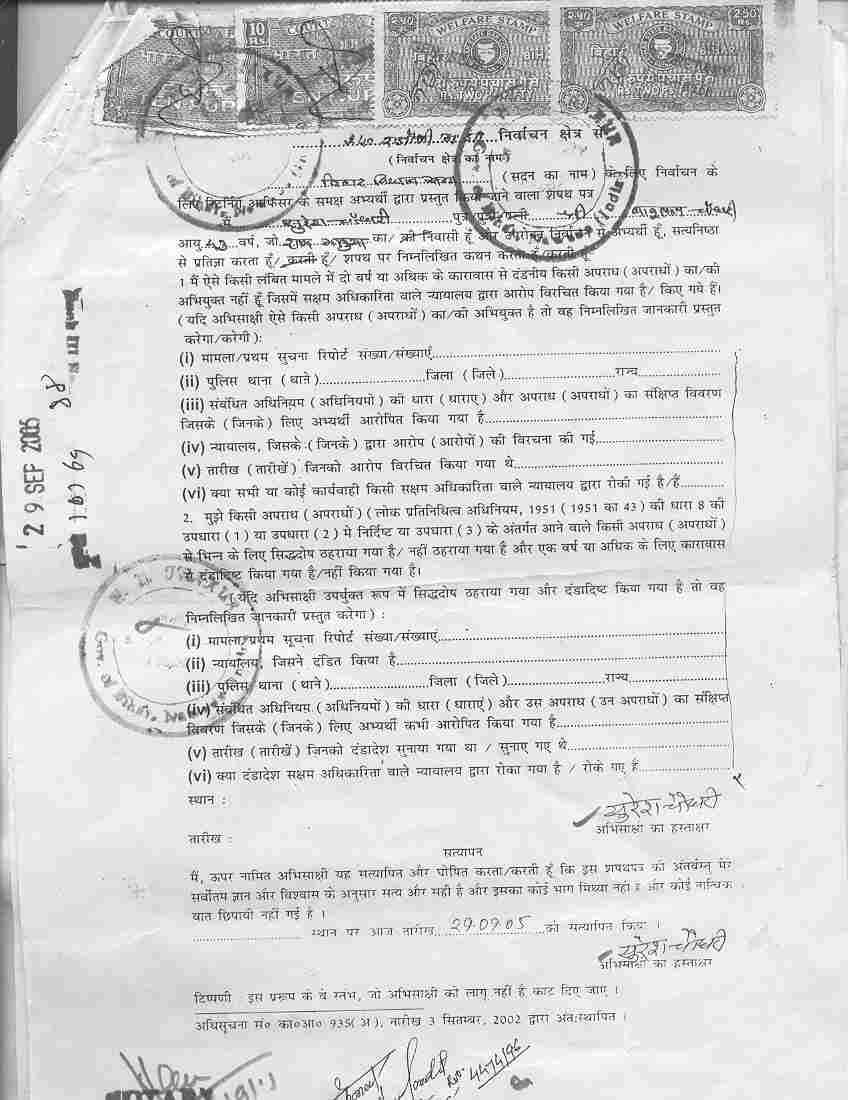 COURT
10 RS
COURT
भारत
WELFARE STAMP
2.50
बिहार
RS.TWO PS.FIFTY
2.50
WELFARE STAMP
2.50 RS.
बिहार
RS.TWO PS.FIFTY
निर्वाचन क्षेत्र से
(निर्वाचन क्षेत्र का नाम)
बिहार विधान सभा (सदन का नाम) के लिए निर्वाचन के
लिए रिटर्निंग आफिसर के समक्ष अभ्यर्थी द्वारा प्रस्तुत किया जाने वाला शपथ पत्र
मैं सुरेश चौधरी पुत्र/पुत्री/पत्नी श्री चौधरी
आयु वर्ष, जो का/ की निवासी हूँ और उपरोक्त निर्वाचन से अभ्यर्थी हूँ, सत्यनिष्ठा
से प्रतिज्ञा करता हूँ/ करती हूँ/ शपथ पर निम्नलिखित कथन करता हूँ/करती हूँ
1 मैं ऐसे किसी लंबित मामले में दो वर्ष या अधिक के कारावास से दंडनीय किसी अपराध (अपराधों) का/की
अभियुक्त नहीं हूँ जिसमें सक्षम अधिकारिता वाले न्यायालय द्वारा आरोप विरचित किया गया है/ किए गये हैं।
(यदि अभिसाक्षी ऐसे किसी अपराध (अपराधों) का/की अभियुक्त है तो वह निम्नलिखित जानकारी प्रस्तुत
करेगा/करेगी):
(i) मामला/प्रथम सुचना रिपोर्ट संख्या/संख्याएं
(ii) पुलिस थाना (थाने) जिला (जिले) राज्य
(iii) संबंधित अधिनियम (अधिनियमों) की धारा (धाराए) और अपराध (अपराधों) का संक्षिप्त विवरण
जिसके (जिनके) लिए अभ्यर्थी आरोपित किया गया है
(iv) न्यायालय, जिसके (जिनके) द्वारा आरोप (आरोपों) की विरचना की गई
(v) तारीख (तारीखें) जिनको आरोप विरचित किया गया थे
(vi) क्या सभी या कोई कार्यवाही किसी सक्षम अधिकारिता वाले न्यायालय द्वारा रोकी गई है/हैं
2. मुझे किसी अपराध (अपराधों) (लोक प्रतिनिधित्व अधिनियम, 1951 (1951 का 43) की धारा 8 की
उपधारा (1) या उपधारा (2) मे निर्दिष्ट या उपधारा (3) के अंतर्गत आने वाले किसी अपराध (अपराधों)
से भिन्न के लिए सिद्धदोष ठहराया गया है/ नहीं ठहराया गया है और एक वर्ष या अधिक के लिए कारावास
से दंडादिष्ट किया गया है/नहीं किया गया है।
(यदि अभिसाक्षी उपर्युक्त रूप में सिद्धदोष ठहराया गया और दंडादिष्ट किया गया है तो वह
निम्नलिखित जानकारी प्रस्तुत करेगा) :
(i) मामला/प्रथम सूचना रिपोर्ट संख्या/संख्याएं
(ii) न्यायालय, जिसने दंडित किया है
(iii) पुलिस थाना (थाने) जिला (जिले) राज्य
(iv) संबंधित अधिनियम (अधिनियमों) की धारा (धाराएं) और उस अपराध (उन अपराधों) का संक्षिप्त
विवरण जिसके (जिनके) लिए अभ्यर्थी कभी आरोपित किया गया है
(v) तारीख (तारीखें) जिनको दंडादेश सुनाया गया था / सुनाए गए थे
(vi) क्या दंडादेश सक्षम अधिकारिता वाले न्यायालय द्वारा रोका गया है / रोके गए हैं
स्थान :
सुरेश चौधरी
अभिसाक्षी का हस्ताक्षर
तारीख :
सत्यापन
मैं, ऊपर नामित अभिसाक्षी यह सत्यापित और घोषित करता/करती हूँ कि इस शपथपत्र की अंतर्वस्तु मेरे
सर्वोतम ज्ञान और विश्वास के अनुसार सत्य और सही है और इसका कोई भाग मिथ्या नहीं है और कोई तात्विक
बात छिपायी नहीं गई है ।
स्थान पर आज तारीख 29.09.05 को सत्यापित किया ।
सुरेश चौधरी
अभिसाक्षी का हस्ताक्षर
टिप्पणी इस प्ररूप के वे स्तंभ, जो अभिसाक्षी को लागू नहीं है काट दिए जाए ।
अधिसूचना सं० का०आ० 935(अ), तारीख 3 सितम्बर, 2002 द्वारा अंत:स्थापित ।
29 SEP 2005
NOTARY